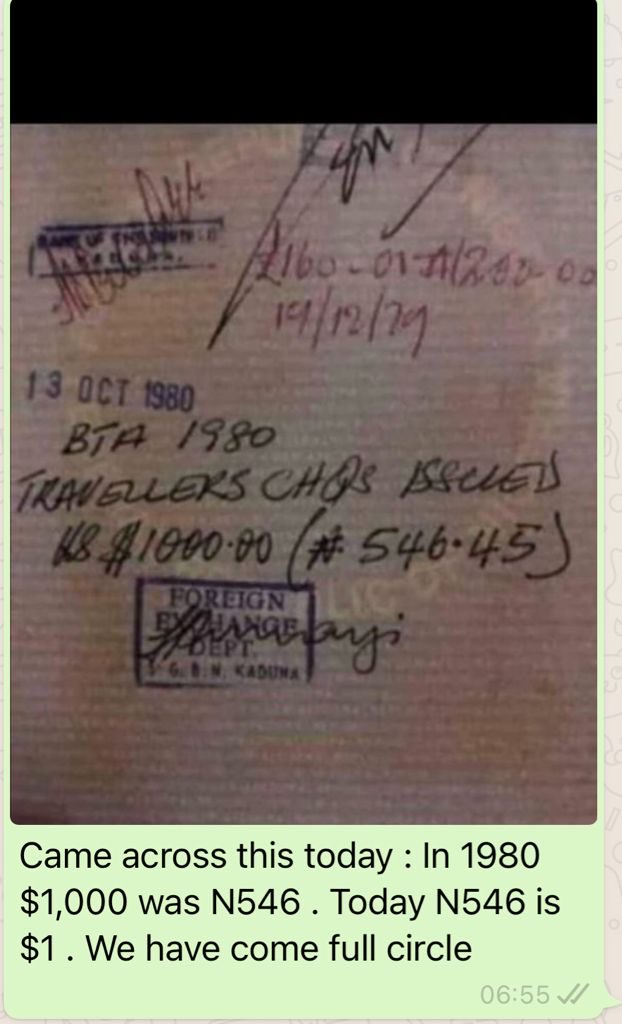 £160-01 ₦200-00
19/12/79
13 OCT 1980
BTA 1980
TRAVELLERS CHQS ISSUED
US $1000.00 (₦ 546.45)
FOREIGN
EXCHANGE
DEPT.
KADUNA
Came across this today : In 1980
$1,000 was N546 . Today N546 is
$1 . We have come full circle
06:55